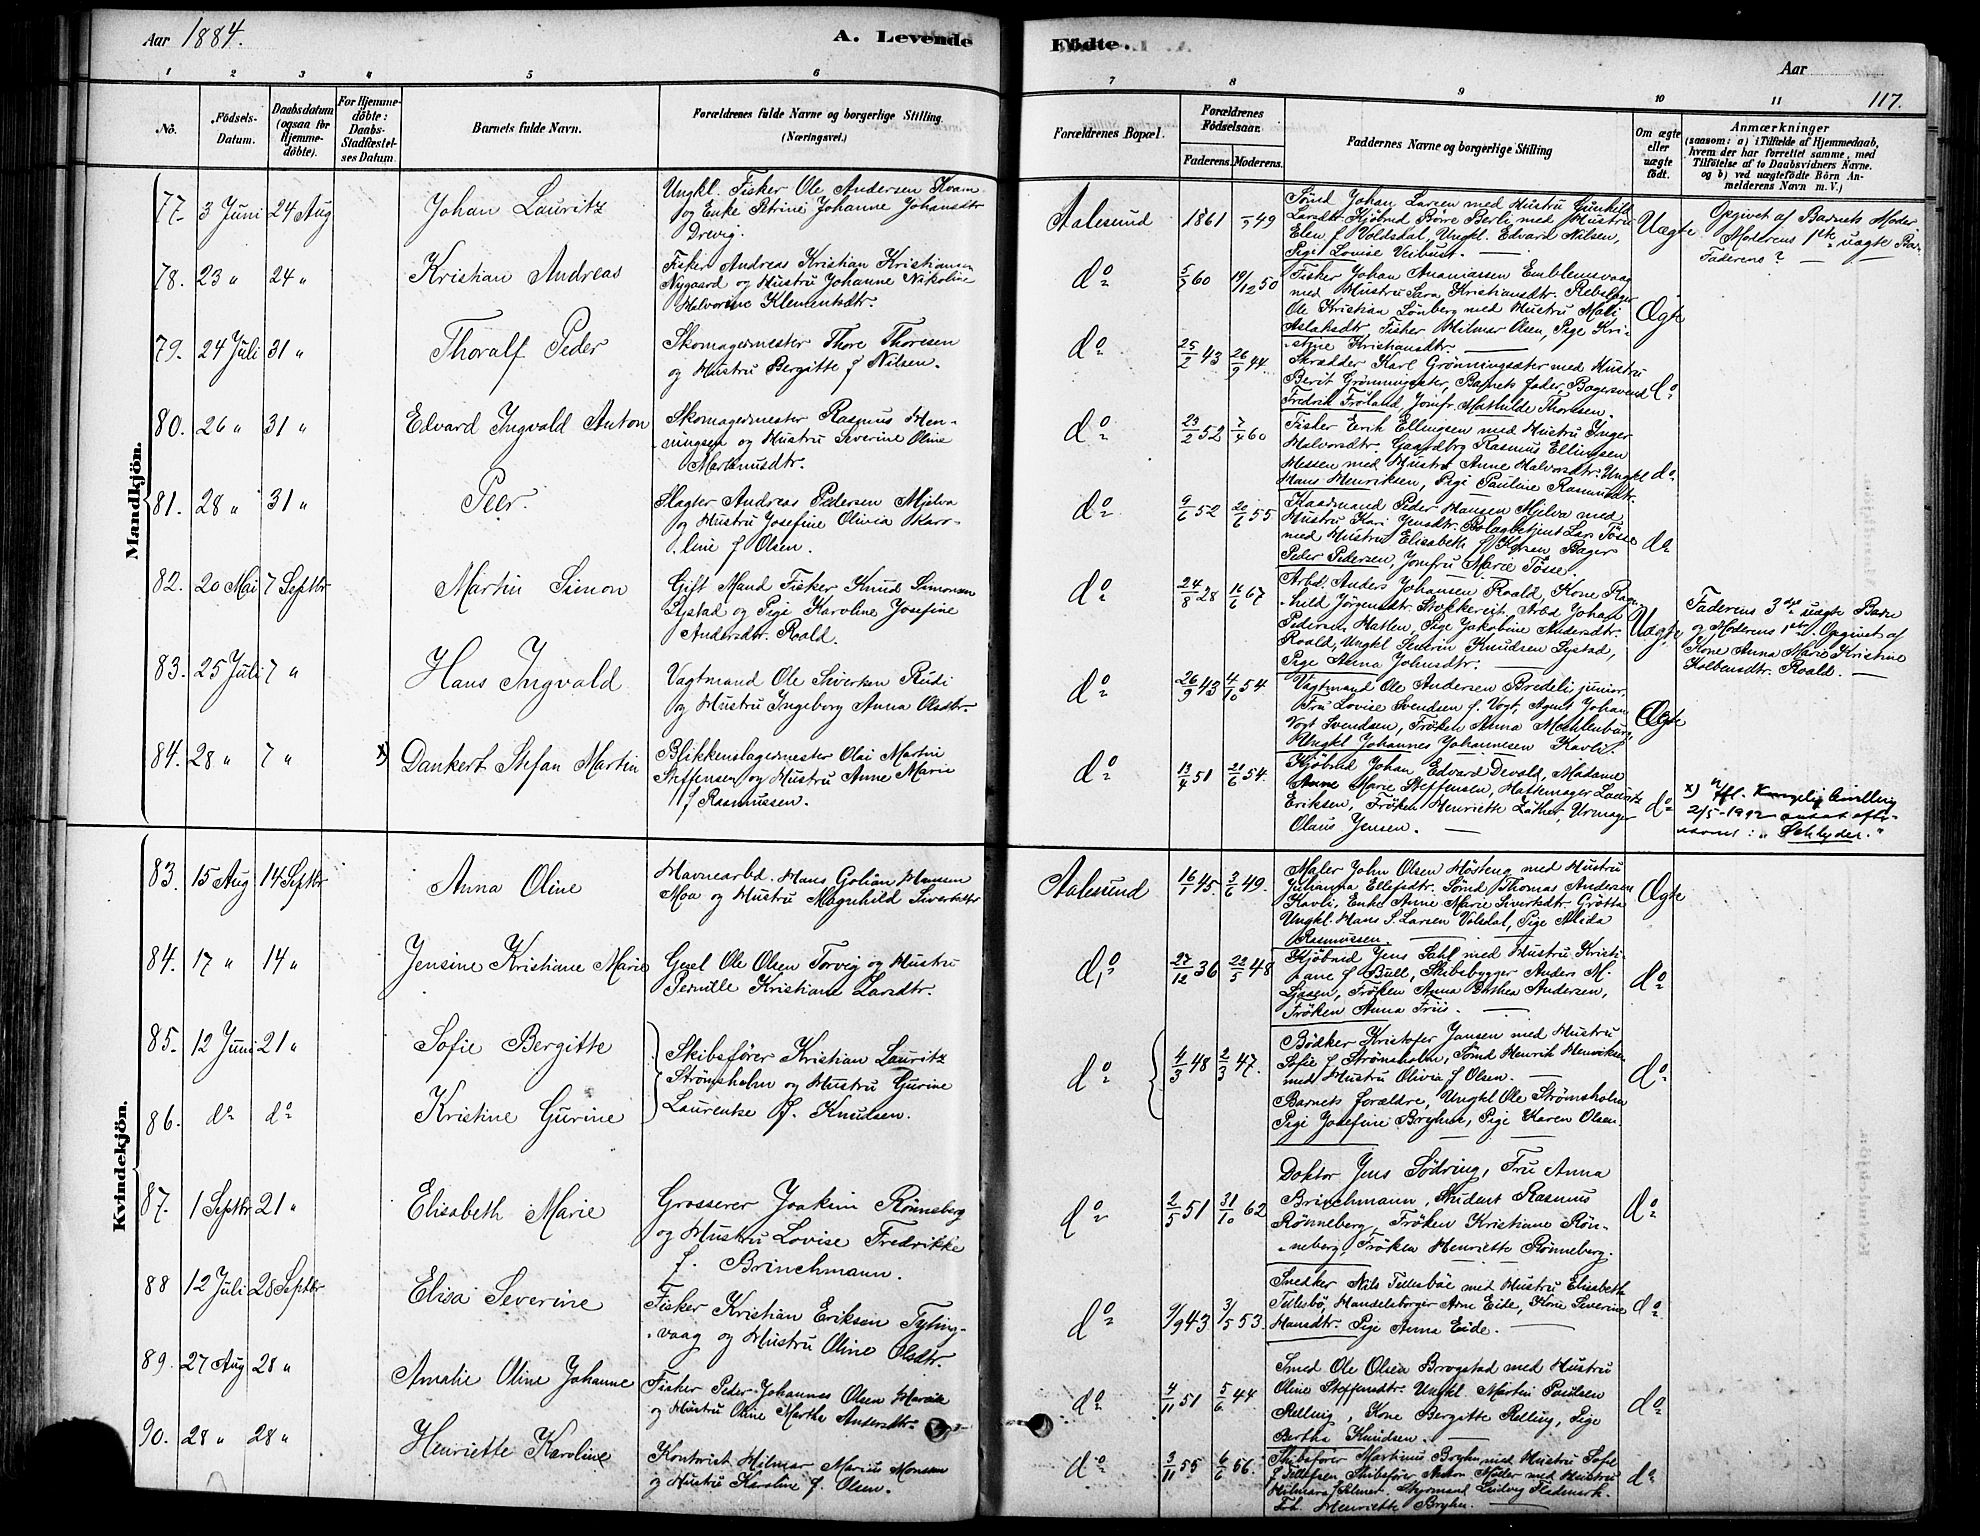 Aar 1884.
A. Levende
Födte.
Aar
117.
1 2 3 4 5 6 7 8 9 10 11
No.
Födsels-Datum.
Daabsdatum (ogsaa for Hjemme-döbte).
For Hjemme-döbte: Daabs-Stadfæstel-ses Datum.
Barnets fulde Navn.
Forældrenes fulde Navne og borgerlige Stilling. (Næringsvei.)
Forældrenes Bopæl.
Forældrenes Födselsaar.
Faderens. Moderens.
Faddernes Navne og borgerlige Stilling
Om ægte eller uægte födt.
Anmærkninger
(saasom: a) i Tilfælde af Hjemmedaab,
hvem der har forrettet samme, med
Tilföielse af to Daabsvidners Navne.
og b) ved uægtefödte Börn An-
melderens Navn m. V.)
Mandkjön.
77. 3 Juni 24 Aug
Johan Lauritz
Ungkl. Fisker Ole Andersen Kvam
og Enke Petrine Johanne Johansdtr
Drevig.
Aalesund 1861 49
Tömd Johan Larsen med Hustru Gunhild
Larsdtr. Kjöbmd Börre Berli med Hustru
Elen f Voldsdal, Ungkl. Edvard Nilsen,
Pige Lovise Veibust.
Uægte
Opgivet af Barnets Moder
Moderens 1ste uægte Barn
Faderens ?
78. 23 " 24 "
Kristian Andreas
Fisker Andreas Kristian Kristiansen
Nygaard og Hustru Johanne Nikoline
Halvorine Klementsdtr.
do 5/5 60 19/12 50
Fisker Johan Ananiassen Emblemsvaag
med Hustru Sara Kristiansdtr. Rebslager
Ole Kristian Lönberg med Hustru Mali
Aslaksdtr. Fisker Hilmar Olsen, Pige Kri-
stine Kristiansdtr.
Ægte
79. 24 Juli 31 "
Thoralf Peder
Skomagermester Thore Thoresen
og Hustru Bergitte f Nilsen.
do 25/2 43 26/9 44.
Skrædder Karl Grönningsæter med Hustru
Berit Grönningsæter, Barnets fader, Bagersvend
Fredrik Fröland, Jomfr. Mathilde Thoresen.
do
80. 26 " 31 "
Edvard Ingvald Anton
Skomagermester Rasmus Hen-
ningsen og Hustru Severine Oline
Martinusdtr.
do 23/2 52 7/4 60
Fisker Erik Ellingsen med Hustru Inger
Halvorsdtr. Gaardbrg Rasmus Ellingsen
Hessen med Hustru Anne Halvorsdtr. Ungkl
Hans Henriksen, Pige Pauline Rasmusdtr.
do
81. 28 " 31 "
Peer.
Slagter Andreas Pedersen Mjelva
og Hustru Josefine Olivia Karo-
line f Olsen.
do 9/6 52 20/6 55
Kaarmand Peder Hansen Mjelva med
Hustru Kari Jensdtr. Lars Tösse
med Hustru Elisabeth Bager
Peder Pedersen, Jomfru Marie Tösse
do
82. 20 Mai 7 Septbr
Martin Simon
Gift Mand Fisker Knud Simonsen
Systad og Pige Karoline Josefine
Andersdtr. Roald.
do 24/8 28 16/6 67
Arbd. Anders Johansen Roald, Kone Ragn-
hild Jörgensdtr. Stokkereit, Arbd Johan
Pedersen Hatlen, Pige Jakobine Andersdtr.
Roald, Ungkl Severin Knudsen Systad,
Pige Anna Johnsdtr.
Uægte
Faderens 3die uægte Barn
og Moderens 1ste. Opgivet af
Kone Anna Marie Kristine
Kolbensdtr. Roald.
83. 25 Juli 7 "
Hans Ingvald
Vagtmand Ole Siversen Rudi
og Hustru Ingeborg Anna Olsdtr.
do 26/9 43 4/10 54.
Vagtmand Ole Andersen Bredeli junior,
Fru Lovise Svendsen f. Vogt, Agent Johan
Vogt Svendsen, Fröken Anna Mecklenburg,
Ungkl Johannes Johannesen Kavli.
Ægte
84. 28 " 7 " x)
Dankert Stefan Martin
Blikkenslagermester Olai Martin
Steffensen og Hustru Anne Marie
f Rasmussen.
do 13/4 51 21/6 54.
Kjöbmd Johan Edvard Devold, Madame
Anne Marie Steffensen, Hattemager Lauritz
Eriksen, Fröken Henriette Lather, Urmager
Olaus Jensen.
do
x) Ifl. Kongelig bevilling
2/5-1992 antat efter-
navnet: "Schlyder."
Kvindekjön.
83. 15 Aug 14 Septbr
Anna Oline
Havnearbd. Hans Golian Hansen
Moa og Hustru Magnhild Siverksdtr
Aalesund 16/1 45. 3/6 49.
Maler John Olsen Hösteng med Hustru
Julianna Ellefsdtr. Tömd Thomas Andersen
Kavli, Enke Anne Marie Siverksdtr. Grötta
Ungkl. Hans S. Larsen Volsdal, Pige Alida
Rasmussen.
Ægte
84. 17 " 14 "
Jensine Kristiane Marie
Gesel Ole Olsen Torvig og Hustru
Pernille Kristiane Larsdtr.
do 27/12 36 22/5 48
Kjöbmd Jens Dahl med Hustru Kristi-
ane f Bull, Skibsbygger Anders M.
Liaaen, Fröken Anna Bothea Andersen,
Fröken Anna Friis.
do
85. 12 Juni 21 "
Sofie Bergitte
86. do do
Kristine Gurine
Skibsförer Kristian Lauritz
Strömsholm og Hustru Gurine
Laurentse f. Knudsen.
do 4/3 48 2/3 47.
Bödker Kristofer Jansen med Hustru
Sofie f Strömsholm, Tömd Henrik Henriksen
med Hustru Olivia f Olsen.
Barnets forældre, Ungkl Ole Strömsholm
Pige Josefine Bryhn, Pige Karen Olsen.
do
87. 1 Septbr 21 "
Elisabeth Marie
Grosserer Joakim Rönneberg
og Hustru Lovise Fredrikke
f. Brinchmann.
do 2/5 51 31/10 62
Doktor Jens Södring, Fru Anna
Brinchmann, Student Rasmus
Rönneberg, Fröken Kristiane Rön-
neberg, Fröken Henriette Rönneberg.
do
88 12 Juli 28 Septbr
Elisa Severine
Fisker Kristian Eriksen Tyling-
vaag og Hustru Oline Olsdtr.
do 9/9 43 3/5 53.
Snedker Nils Tellesbö med Hustru Elisabeth
Tellesbö, Handelsborger Arne Eide, Kone Severine
Hansdtr. Pige Anna Eide.
do
89. 27 Aug 28 "
Amalie Oline Johanne
Fisker Peder Johannes Olsen
og Hustru Oline Marthe Andersdtr.
do 4/11 51 5/6 44
Smed Ole Olsen Brogstad med Hustru
Oline Steffensdtr. Ungkl. Martin Paulsen
Relling, Kone Bergitte Relling, Pige
Bertha Knudsen.
do
90. 28 " 28 "
Henriette Karoline
Kontorist Hilmar Marius Monsen
og Hustru Karoline f. Olsen.
do 3/11 55 6/6 56.
Skibsförer Martinus Bryhn med Hustru Sofie
f Tellefsen, Skibsförer Anton Möller med Hustru
Hilmara f Selmer. Styrmand Ludvig Fladmark.
Frk. Henriette Bryhn.
do